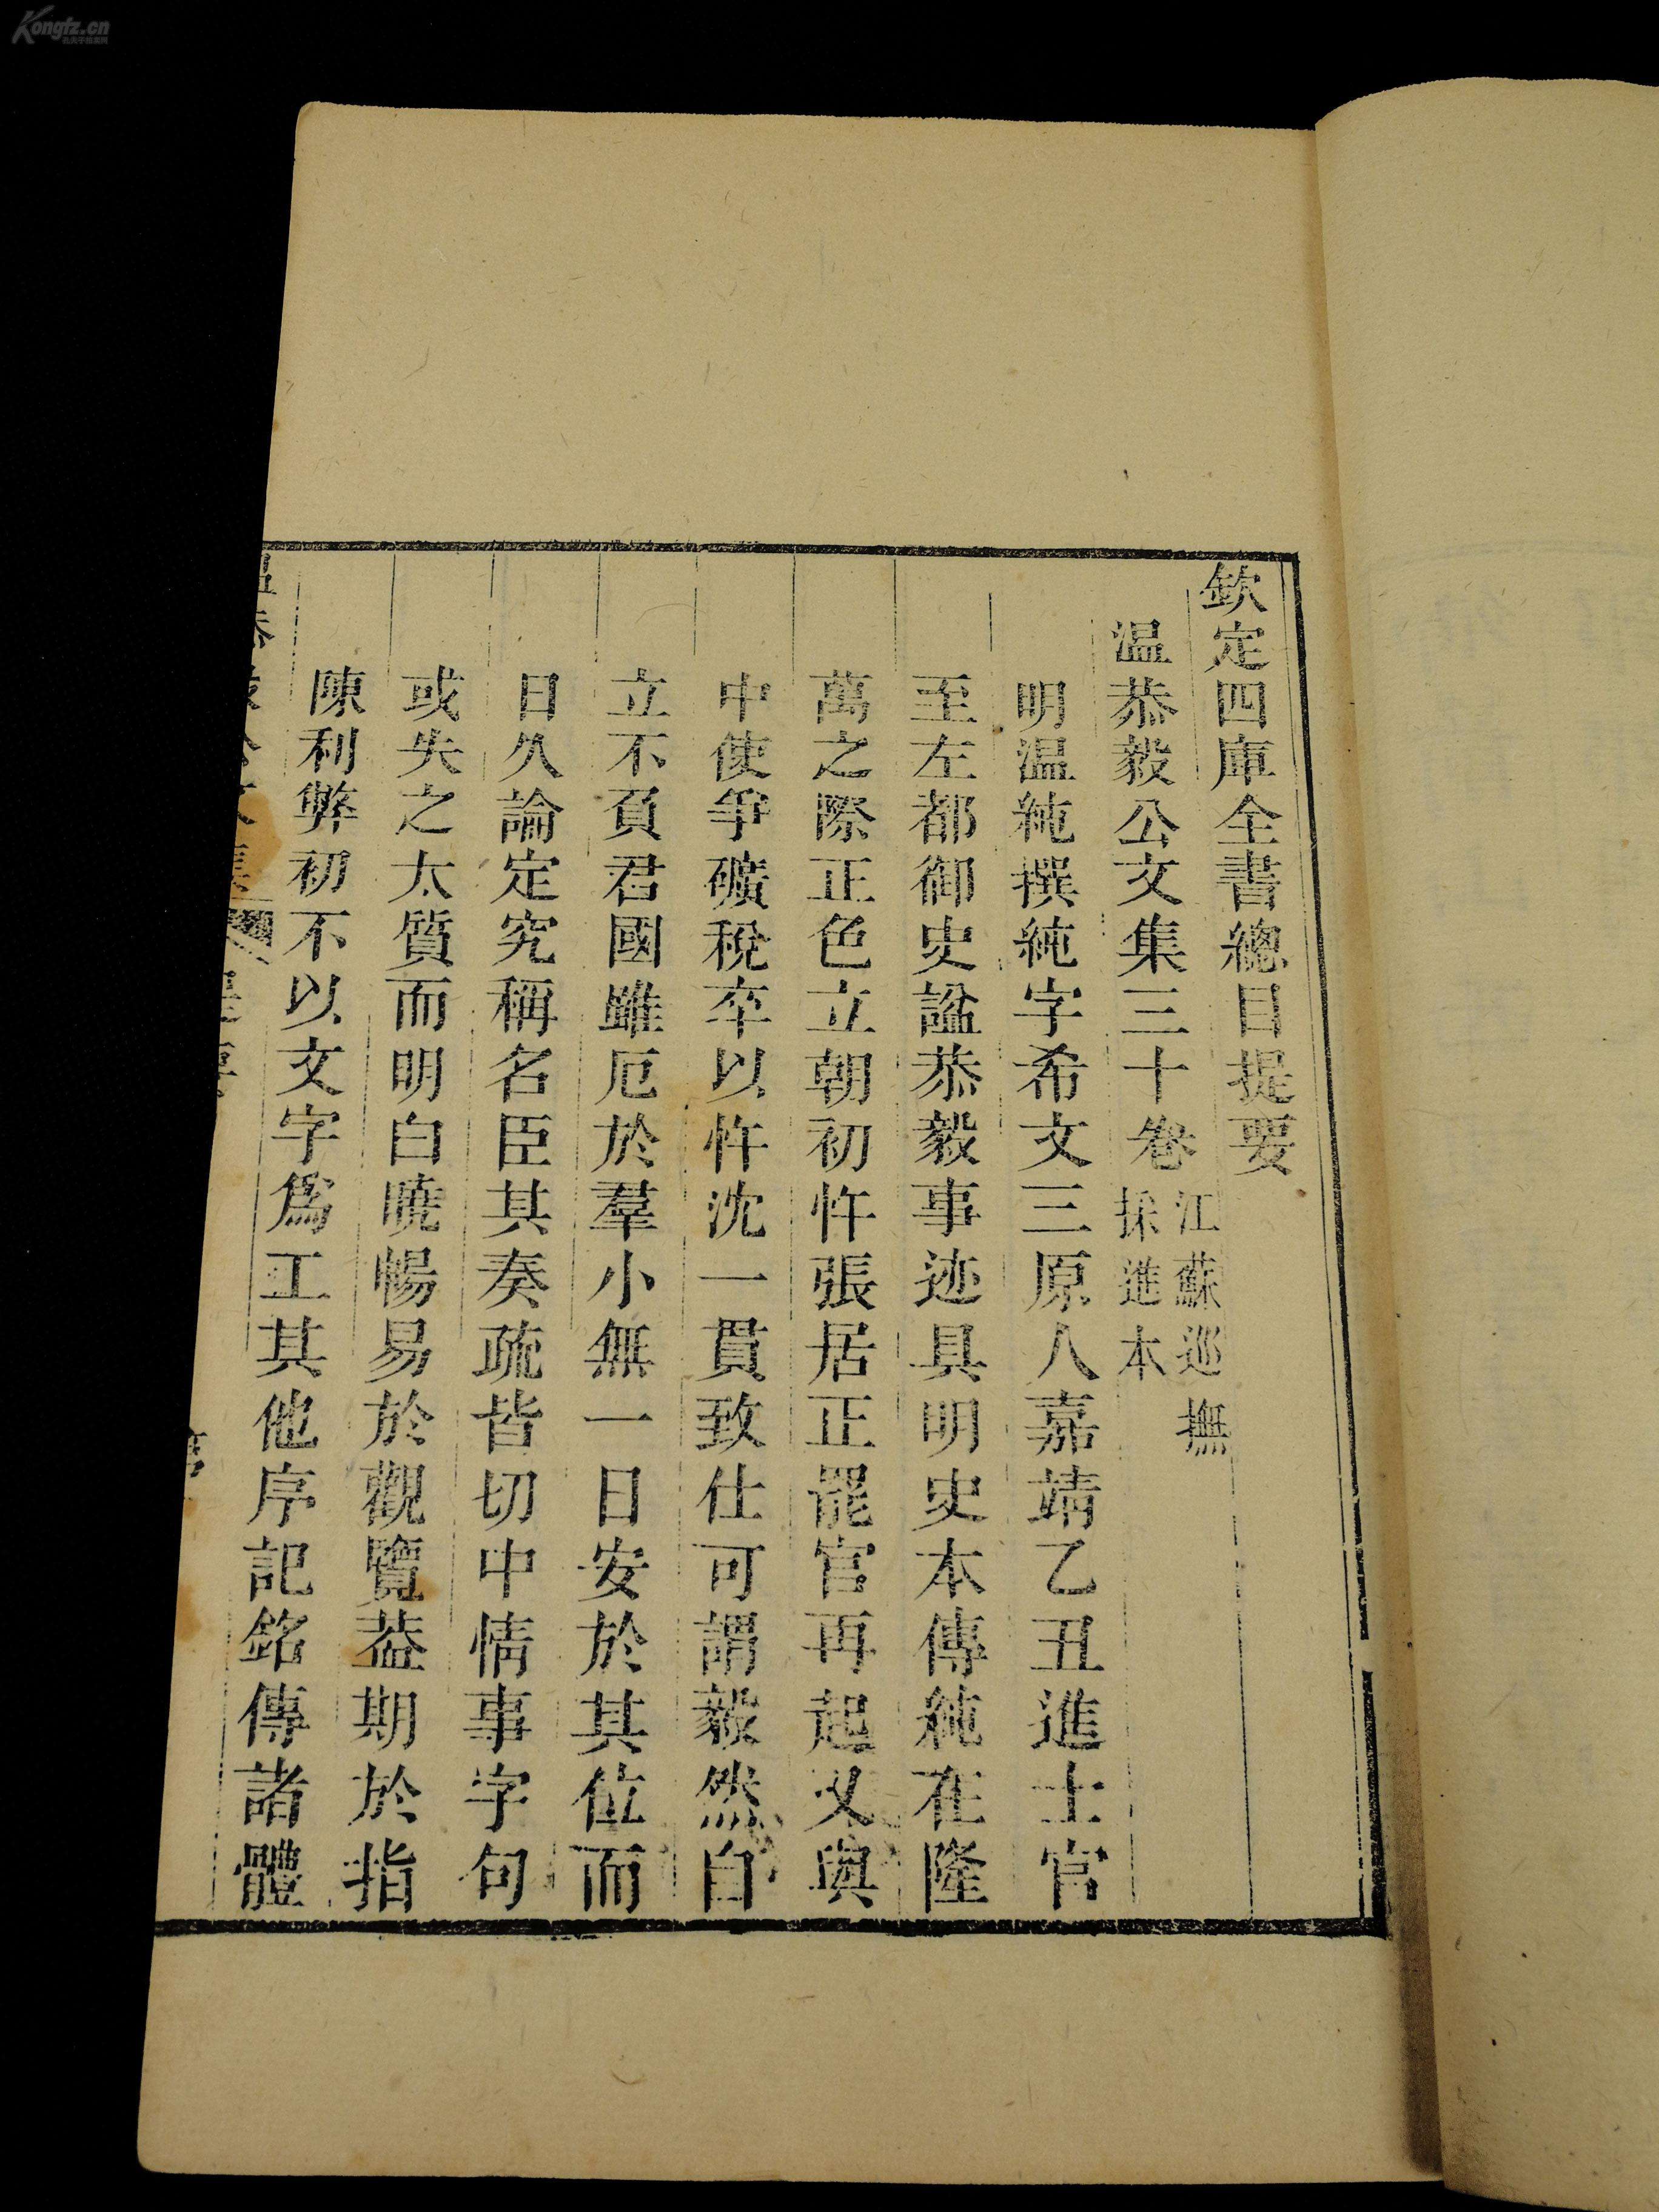 Kongfz.cn
欽定四庫全書總目提要
温恭毅公文集三十卷江蘇巡撫
採進本
明温純撰純字希文三原人嘉靖乙丑進士官
至左都御史諡恭毅事迹具明史本傳純在隆
萬之際正色立朝初忤張居正罷官再起又與
中使爭礦稅卒以忤沈一貫致仕可謂毅然自
立不負君國雖厄於羣小無一日安於其位而
日久論定究稱名臣其奏疏皆切中情事字句
或失之太質而明白曉暢易於觀覽葢期於指
陳利弊初不以文字爲工其他序記銘傳諸體